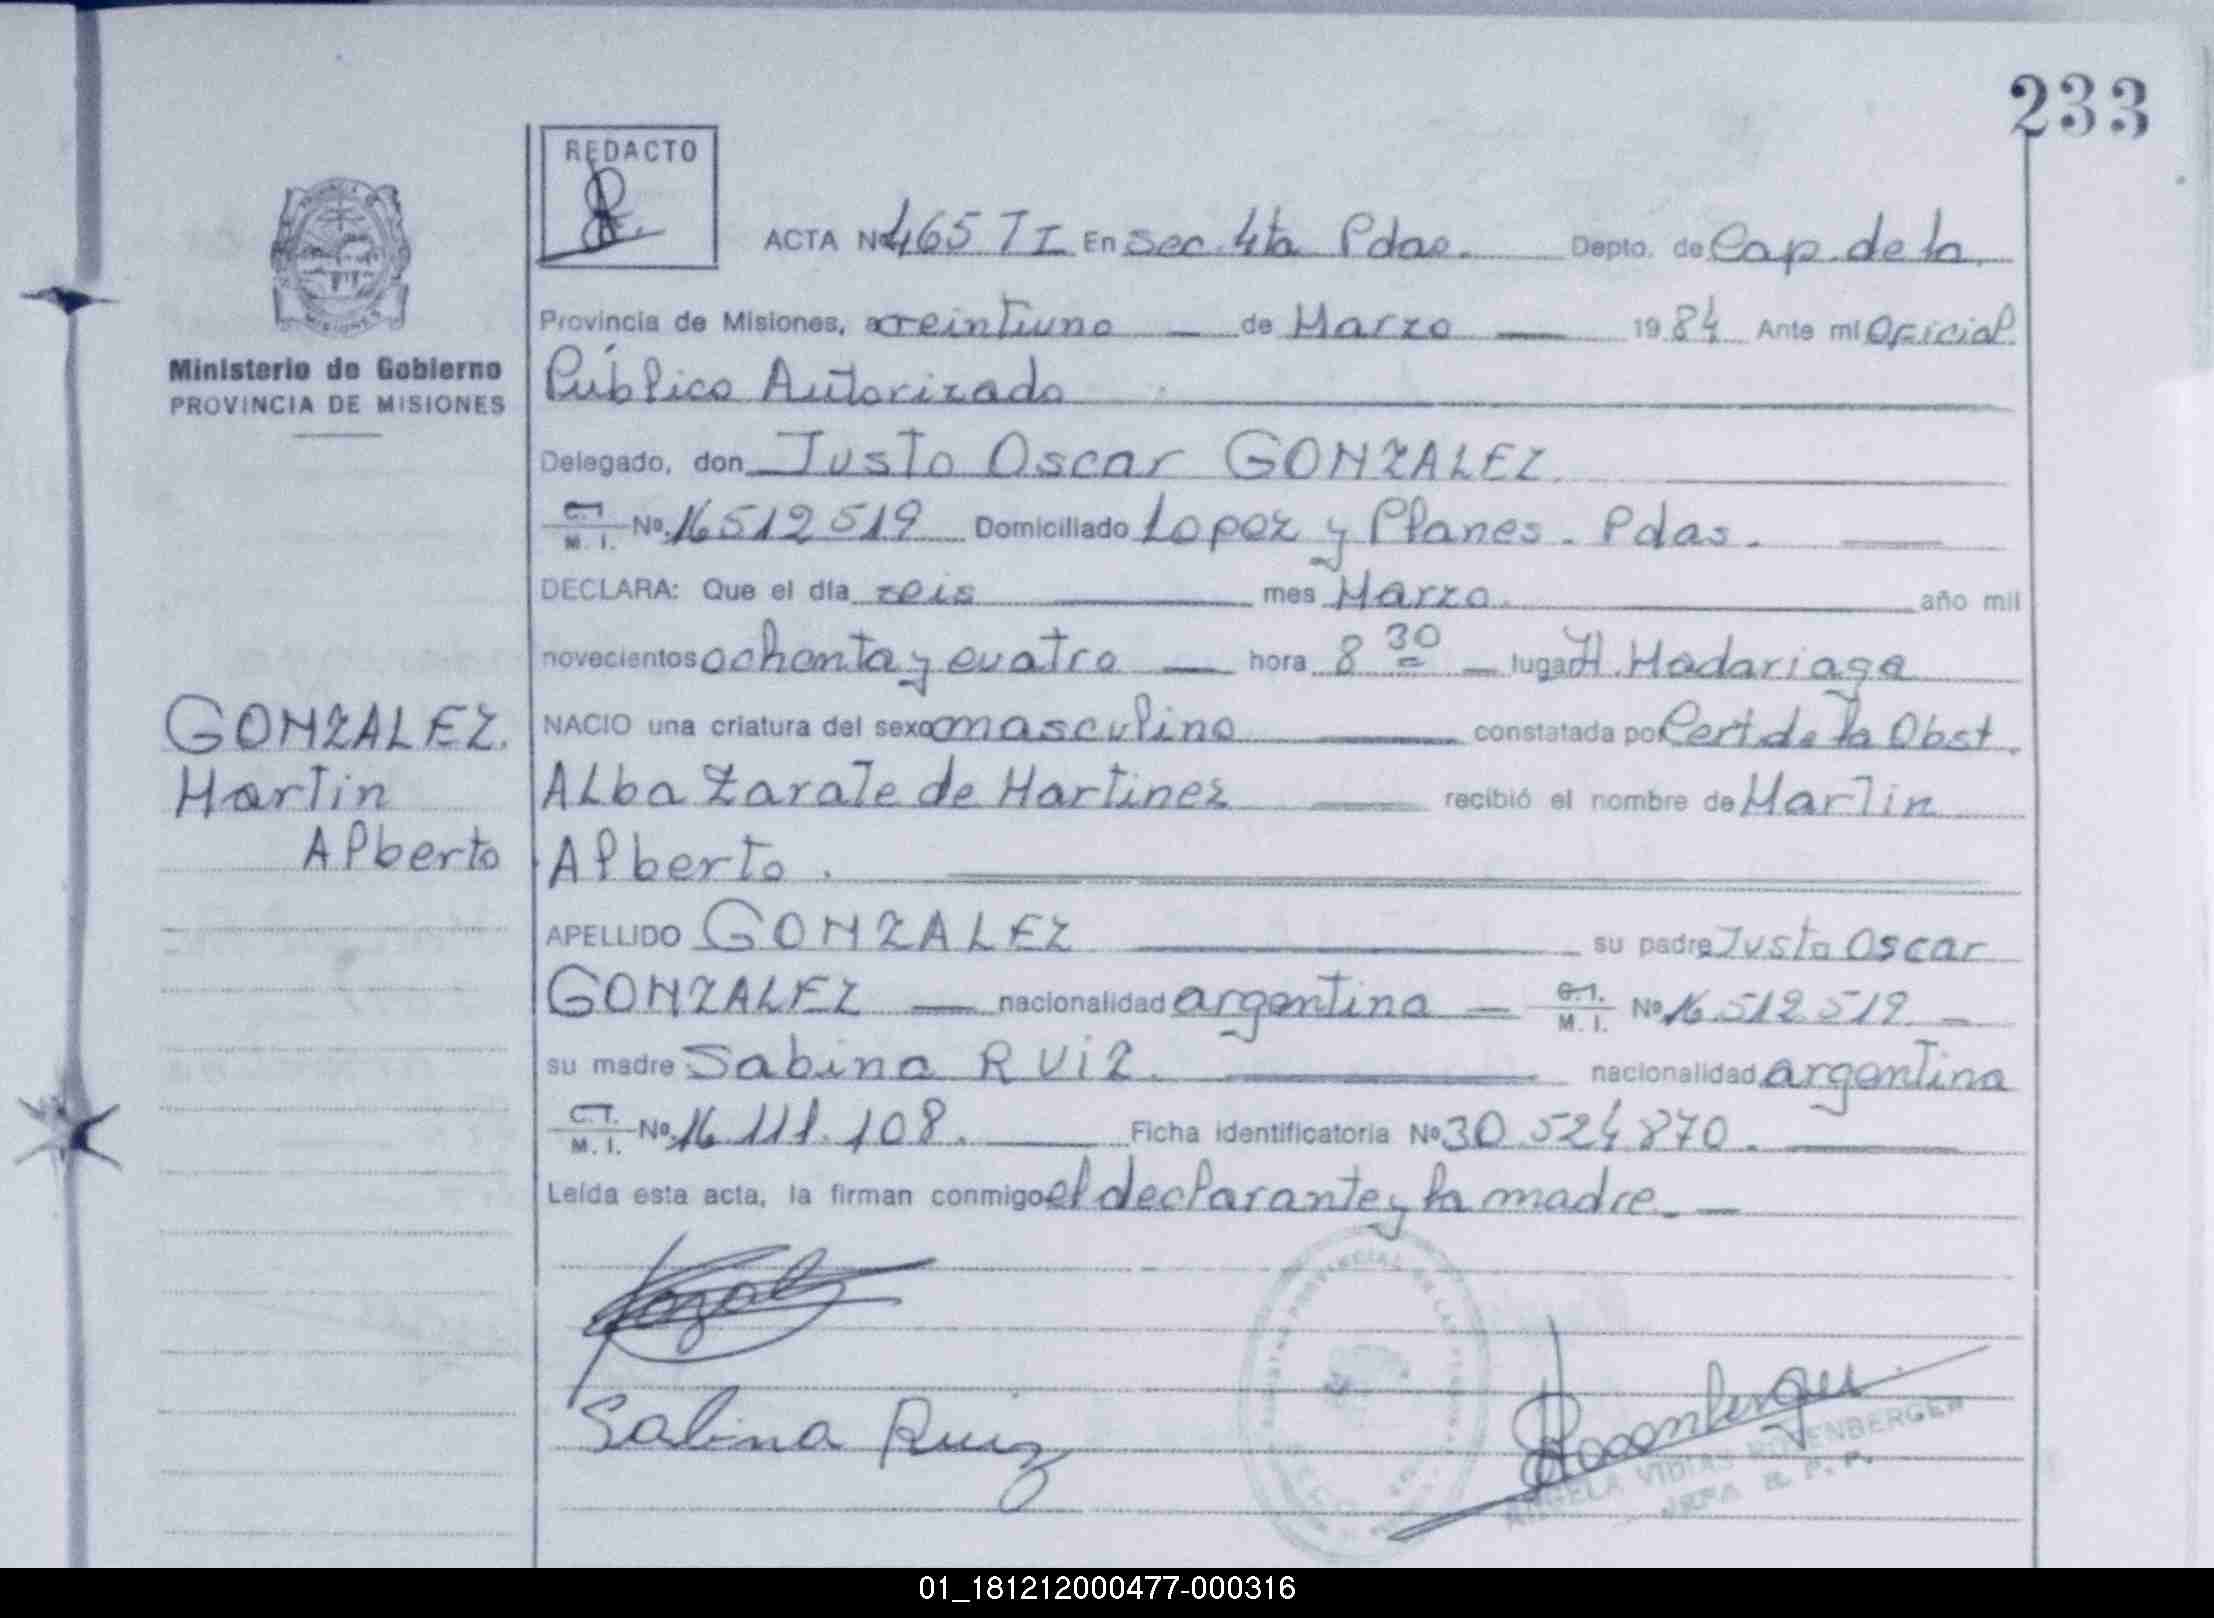 233
REDACTO
ACTA Nº 465 T I En Sec. 4ta Pdas. Depto. de Cap. de la
Provincia de Misiones, a veintiuno de Marzo 1984 Ante mi Oficial
Público Autorizado
Ministerio de Gobierno
PROVINCIA DE MISIONES
Delegado, don Justo Oscar GONZALEZ
C.I. M. I. Nº 16512519 Domiciliado Lopez y Planes. Pdas.
DECLARA: Que el día seis mes Marzo. año mil
novecientos ochenta y cuatro hora 8 30 lugar H. Madariaga
GONZALEZ.
Martin
Alberto
NACIO una criatura del sexo masculino constatada por Cert. de la Obst.
Alba Zarate de Martinez recibió el nombre de Martin
Alberto.
APELLIDO GONZALEZ su padre Justo Oscar
GONZALEZ nacionalidad argentina C.I. M. I. Nº 16.512.519
su madre Sabina RUIZ. nacionalidad argentina
C.I. M. I. Nº 16.111.108. Ficha identificatoria Nº 30.524870.
Leída esta acta, la firman conmigo el declarante y la madre.
Sabina Ruiz
Rosenberger
ANGELA VIDIAS ROSENBERGER
JEFA R. P. P.
01_181212000477-000316